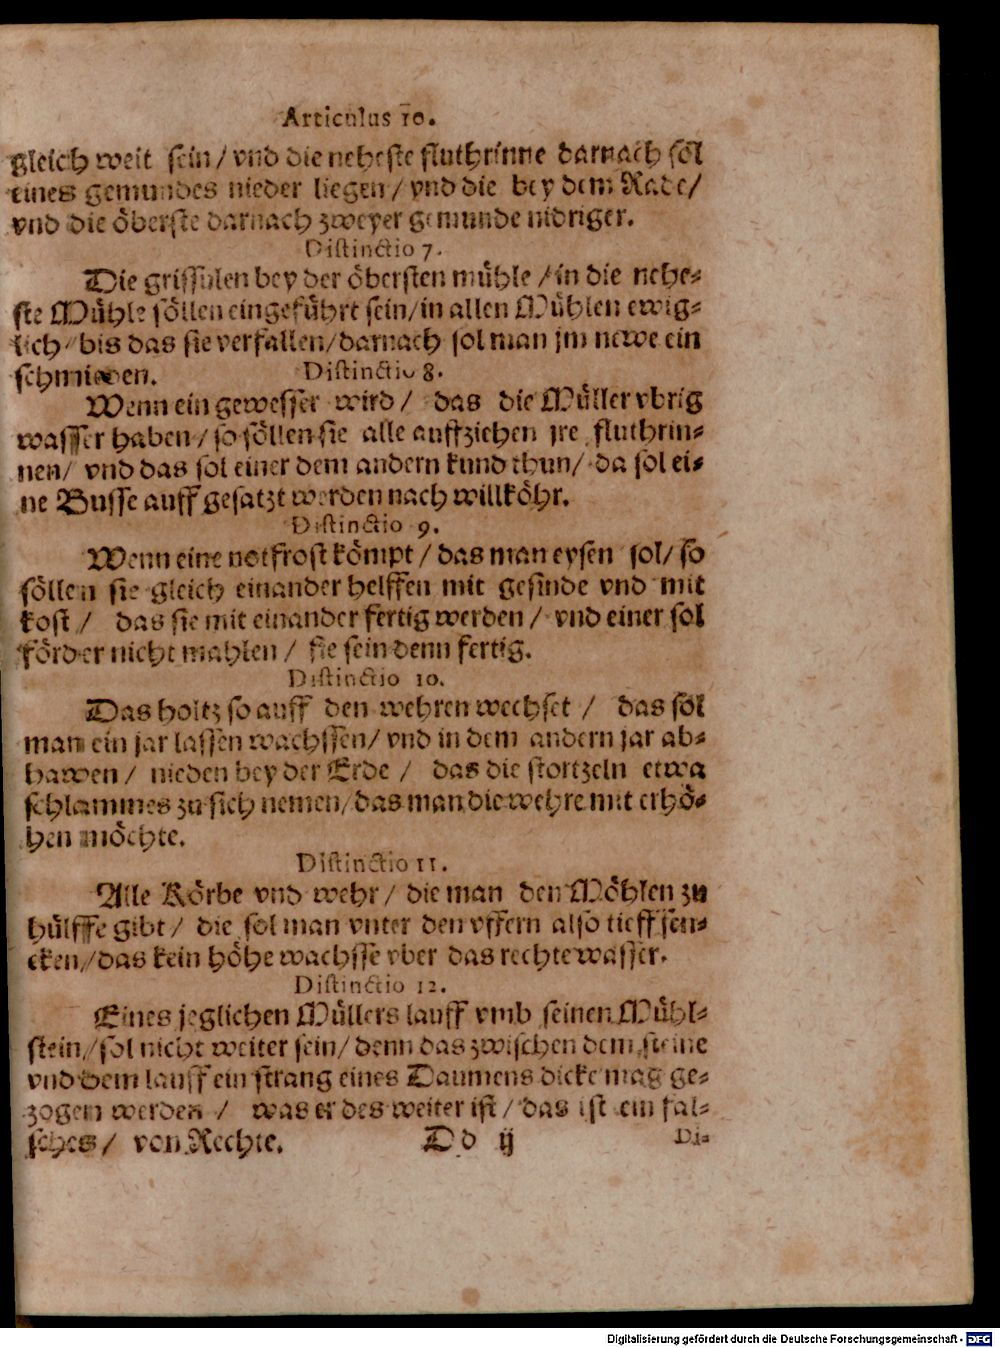 Articulus 10.
gleich weit sein / vnd die neheste fluthrinne darnach sol
eines gemundes nieder liegen / vnd die bey dem Rade /
vnd die öberste darnach zweyer gemunde nidriger.
Distinctio 7.
Die grissulen bey der öbersten mühle / in die nehe-
ste Mühle söllen eingeführt sein / in allen Mühlen ewig-
lich / bis das sie verfallen / darnach sol man jm newe ein
schmieden. Distinctio 8.
Wenn ein gewesser wird / das die Müller vbrig
wasser haben / so söllen sie alle auffziehen jre fluthrin-
nen / vnd das sol einer dem andern kund thun / da sol ei-
ne Busse auff gesatzt werden nach willköhr.
Distinctio 9.
Wenn eine notfrost kömpt / das man eysen sol / so
söllen sie gleich einander helffen mit gesinde vnd mit
kost / das sie mit einander fertig werden / vnd einer sol
förder nicht mahlen / sie sein denn fertig.
Distinctio 10.
Das holtz so auff den wehren wechset / das sol
man ein jar lassen wachssen / vnd in dem andern jar ab-
hawen / nieden bey der Erde / das die stortzeln etwa
schlammes zu sich nemen / das man die wehre mit erhö-
hen möchte.
Distinctio 11.
Alle Körbe vnd wehr / die man den Möhlen zu
hülffe gibt / die sol man vnter den vffern also tieff sen-
cken / das kein höhe wachsse vber das rechte wasser.
Distinctio 12.
Eines jeglichen Müllers lauff vmb seinen Mühl-
stein / sol nicht weiter sein / denn das zwischen dem steine
vnd dem lauff ein strang eines Daumens dicke mag ge-
zogen werden / was er des weiter ist / das ist ein fal-
sches / von Rechte. Dd ij Di-
Digitalisierung gefördert durch die Deutsche Forschungsgemeinschaft - DFG